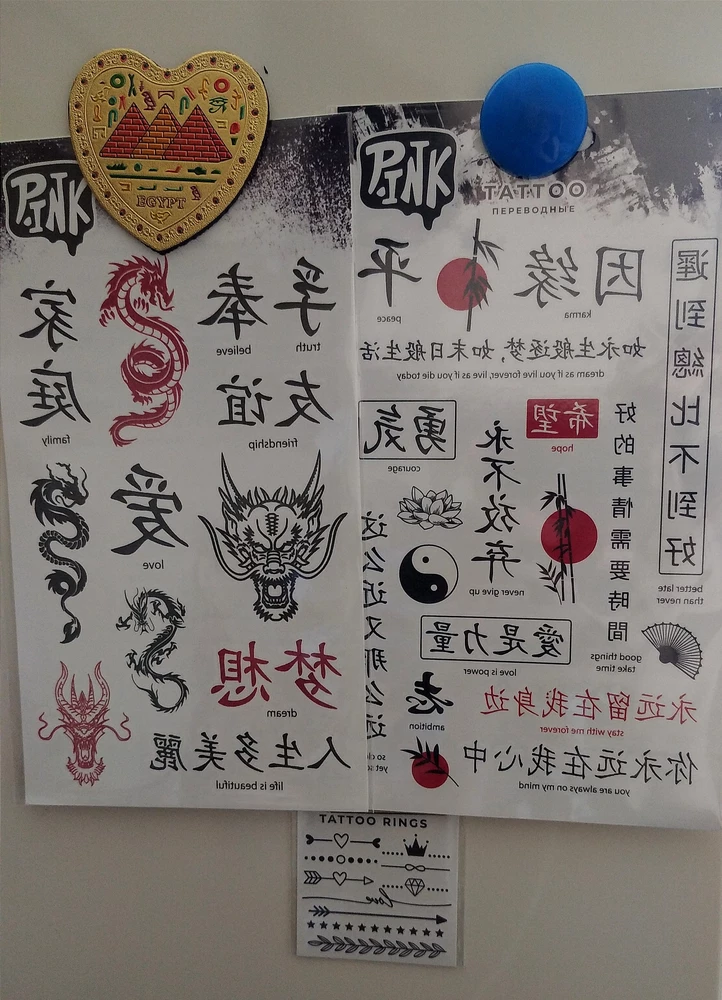 EGYPT
PINK
家庭
family
奉
believe
孚
truth
友谊
friendship
爱
love
梦想
dream
人生多美麗
life is beautiful
PINK
TATTOO
ПЕРЕВОДНЫЕ
平
peace
因缘
karma
遲到總比不到好
better late
than never
如永生般逐梦,如末日般生活
dream as if you live forever, live as if you die today
勇気
courage
希望
hope
永不放弃
never give up
好的事情需要時間
good things
take time
这么近又那么远
so
yet
愛是力量
love is power
志
ambition
永远留在我身边
stay with me forever
你永远在我心中
you are always on my mind
TATTOO RINGS
love